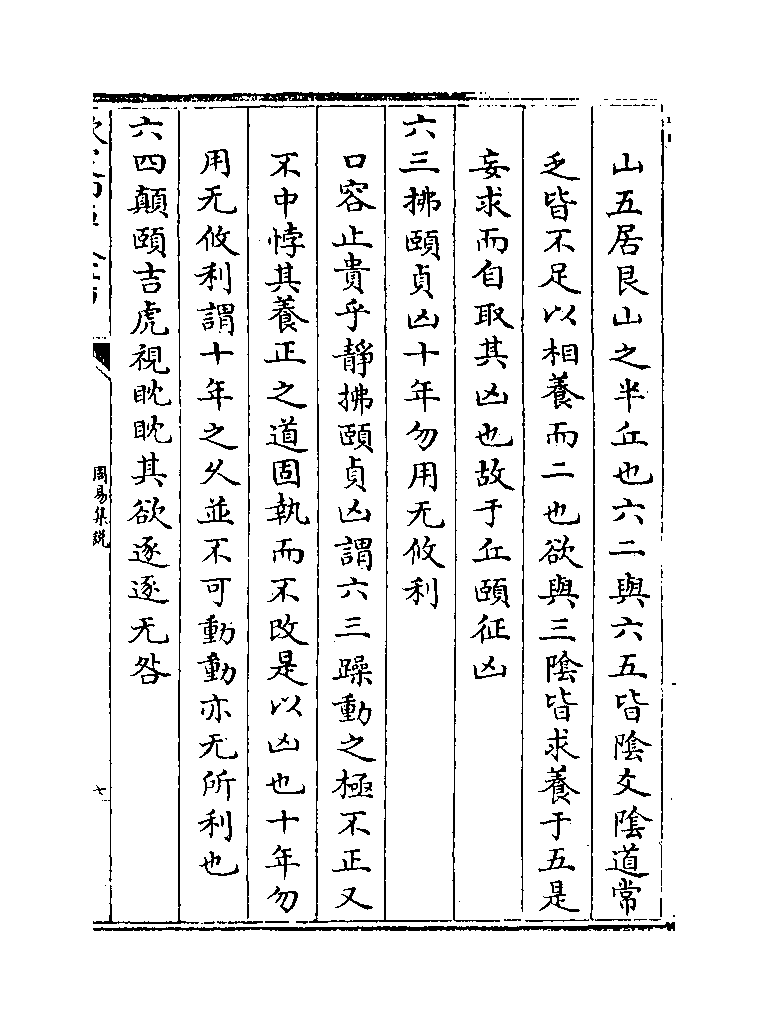 山五居艮山之半丘也六二與六五皆陰爻陰道常
乏皆不足以相養而二也欲與三陰皆求養于五是
妄求而自取其凶也故于丘頤征凶
六三拂頤貞凶十年勿用无攸利
口容止貴乎靜拂頤貞凶謂六三躁動之極不正又
不中悖其養正之道固執而不改是以凶也十年勿
用无攸利謂十年之久並不可動動亦无所利也
六四顛頤吉虎視眈眈其欲逐逐无咎
周易集說
七